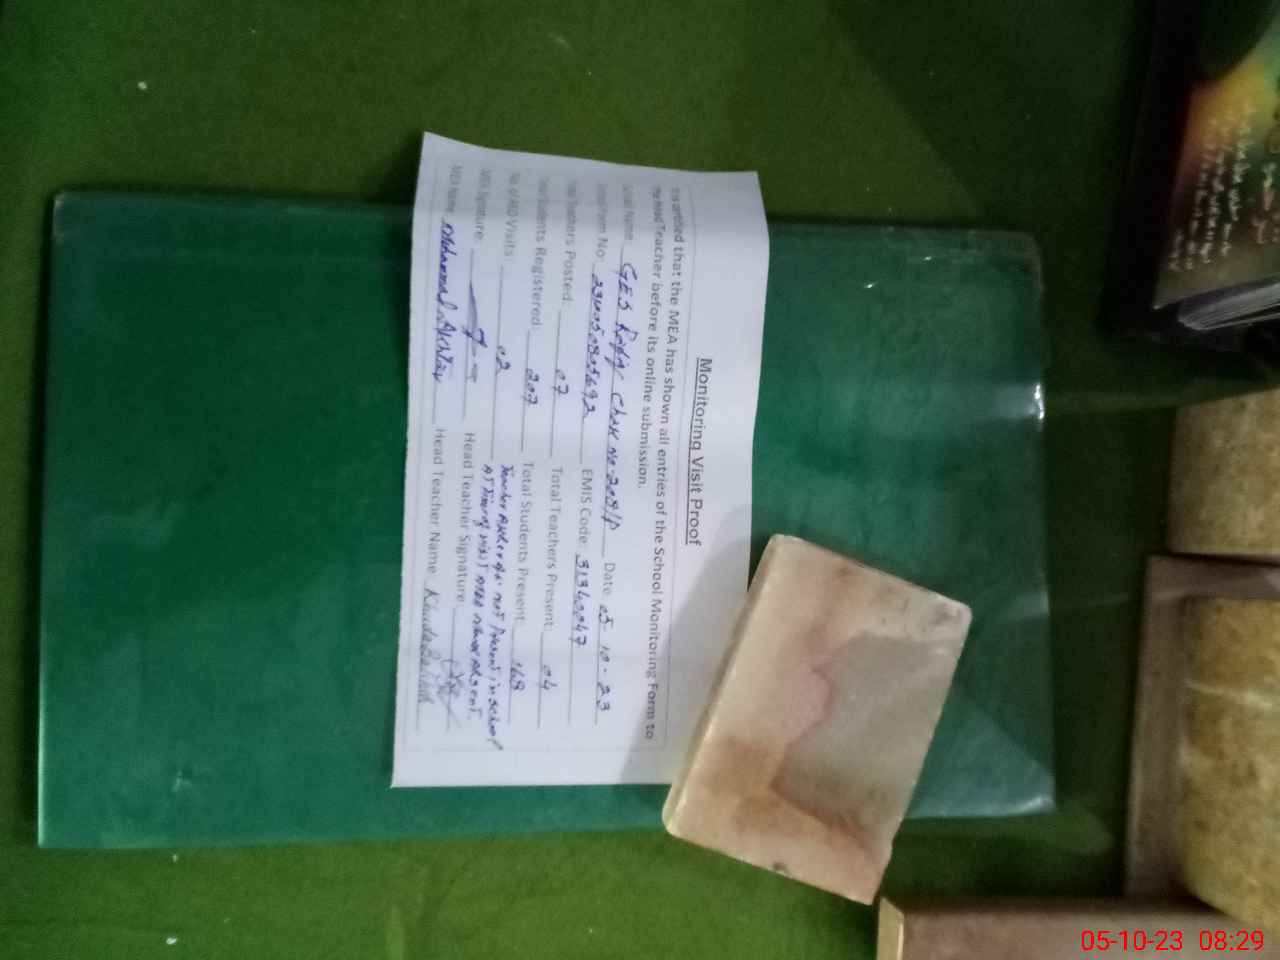 Monitoring Visit Proof
It is certified that the MEA has shown all entries of the School Monitoring Form to
the Head Teacher before its online submission.
School Name: GES Rafiq Chak No. 209/P Date: 05-10-23
School Form No: EMIS Code: 31340047
Total Teachers Posted: 07 Total Teachers Present: 04
Total Students Registered: 207 Total Students Present: 168
No. of AEO Visits: 02 Teacher not Present in school
MEA Signature: AT Time of visit Absent.
Head Teacher Signature:
MEA Name Muhammad Akhtar Head Teacher Name Khuda Bakhsh
05-10-23 08:29